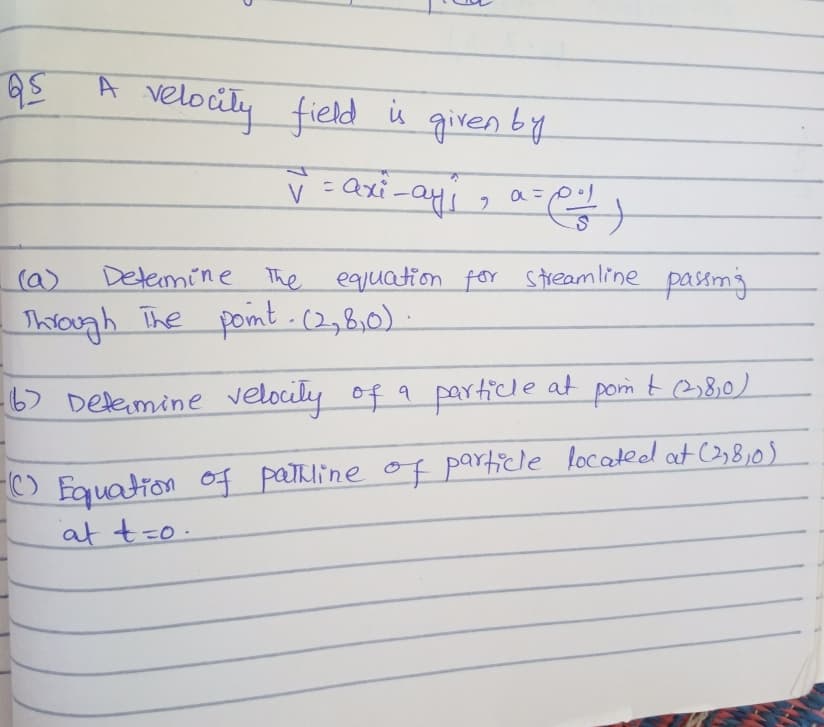 Q5 A velocity field is given by
V⃗ = axî - ayĵ , a = (0.1/s)
(a) Determine The equation for streamline passing
Through The point . (2,8,0) .
(b) Determine velocity of a particle at point (2,8,0)
(C) Equation of pathline of particle located at (2,8,0)
at t=0.